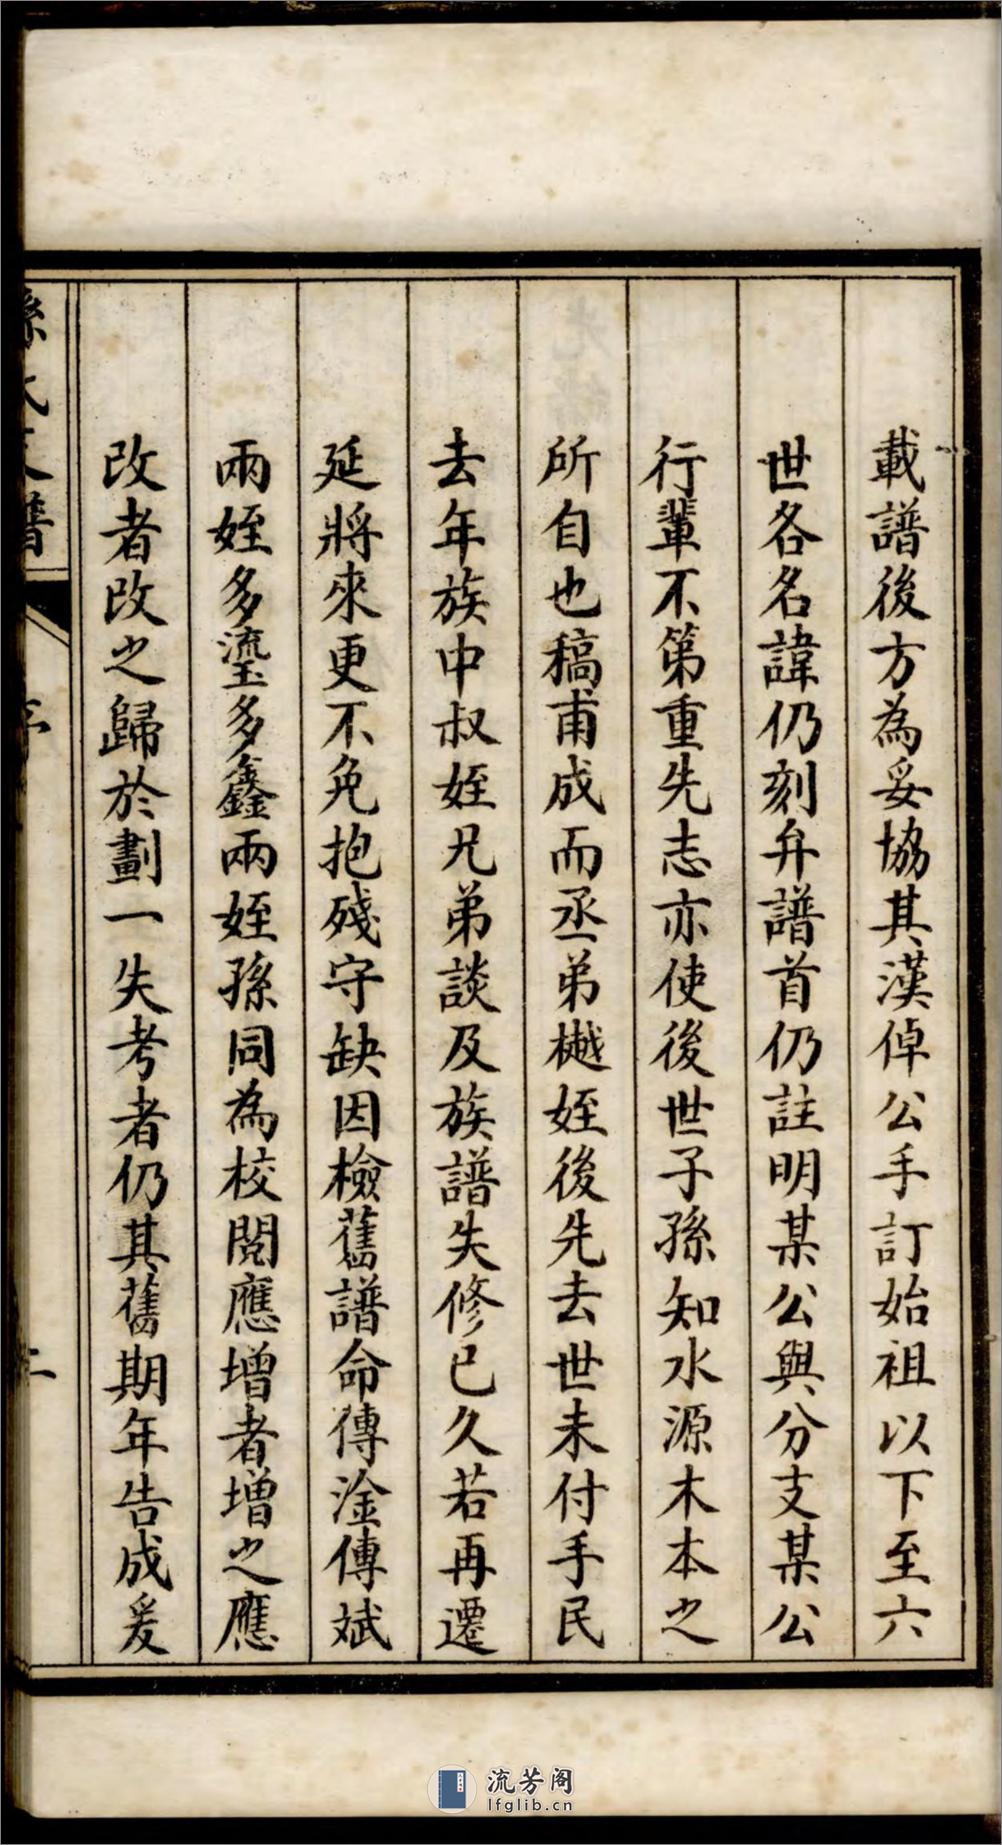 載譜後方為妥協其漢倬公手訂始祖以下至六
世各名諱仍刻弁譜首仍註明某公與分支某公
行輩不第重先志亦使後世子孫知水源木本之
所自也稿甫成而丞弟樾姪後先去世未付手民
去年族中叔姪兄弟談及族譜失修已久若再遷
延將來更不免抱殘守缺因檢舊譜命傳淦傳斌
兩姪多瑬多鑫兩姪孫同為校閱應增者增之應
改者改之歸於劃一失考者仍其舊期年告成爰
孫氏支譜
序
二
流芳阁
lfglib.cn